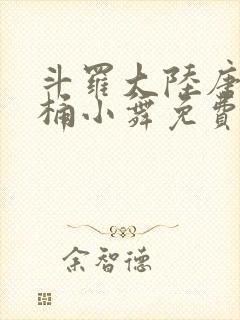 斗羅大陸唐
桶小舞免費
余智德